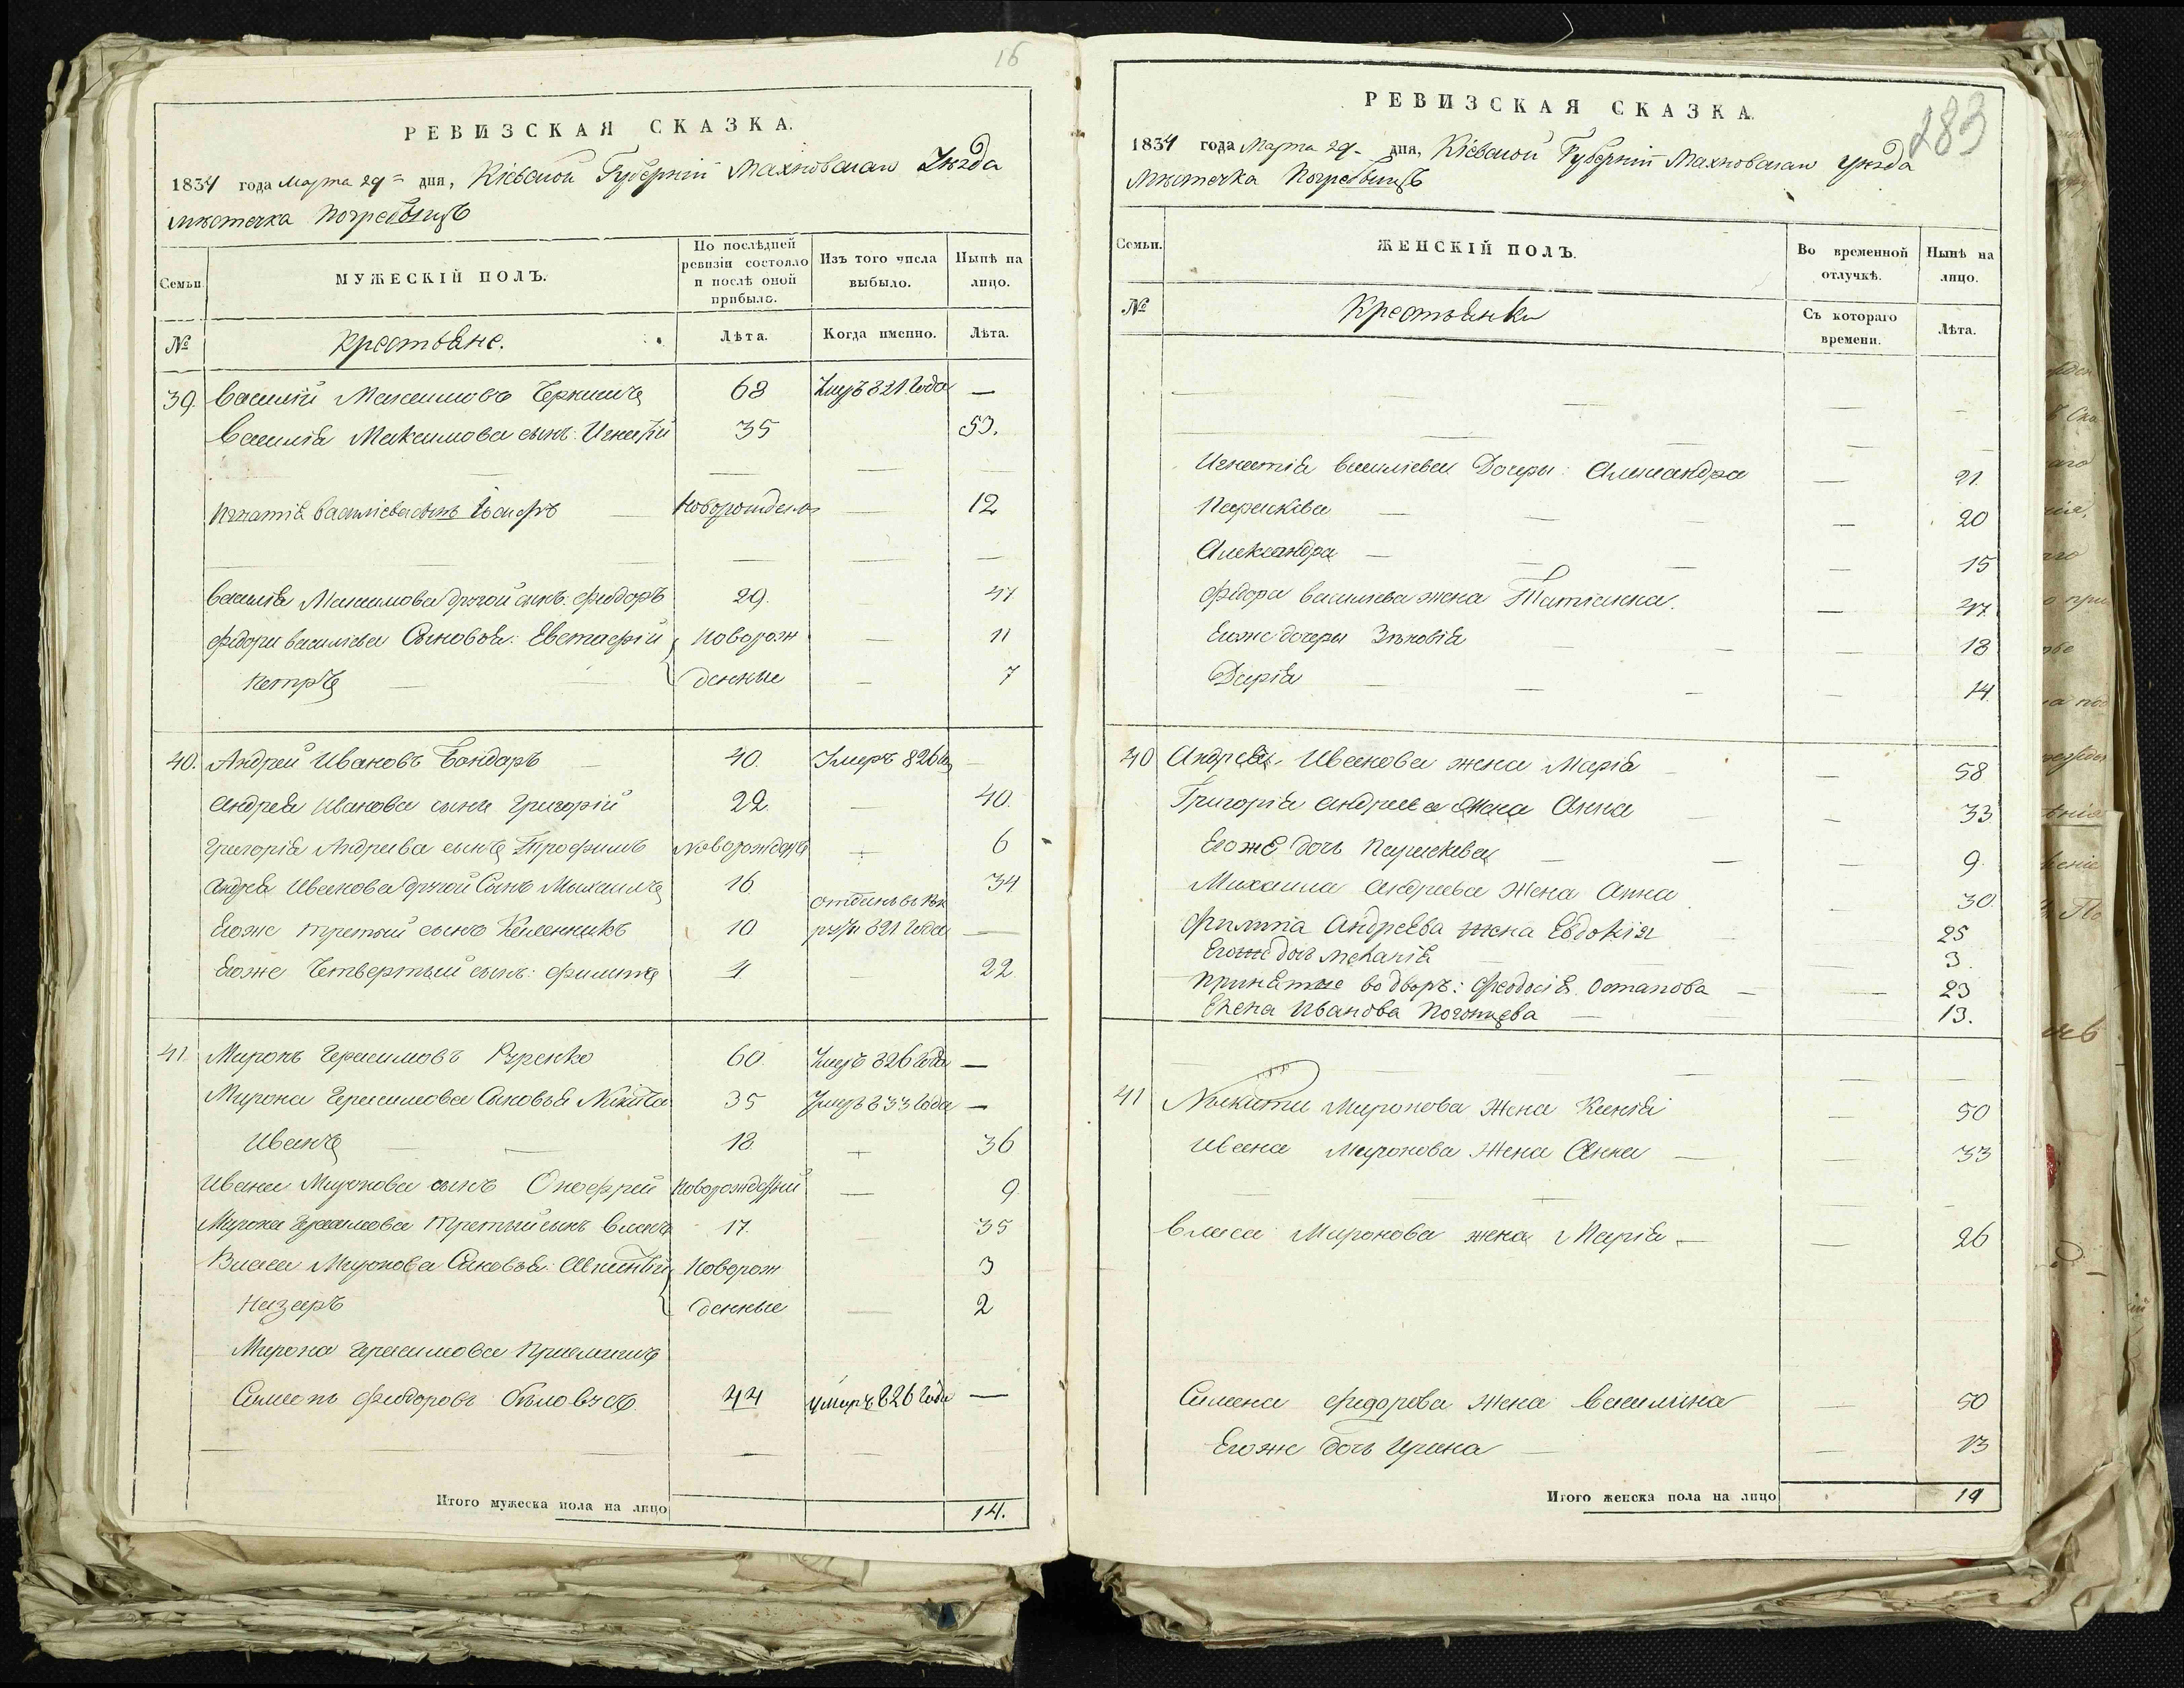 16
РЕВИЗСКАЯ СКАЗКА.
1834 года Марта 29 = дня, Кіевской Губерніи Махновскаго Уѣзда
мѣстечка Погребыщъ
Семьи
МУЖЕСКІЙ ПОЛЪ.
По послѣдней ревизіи состояло и послѣ оной прибыло.
Изъ того числа выбыло.
Нынѣ на лицо.
№
Крестьяне.
Лѣта.
Когда именно.
Лѣта.
39. Василій Максимовъ 68 821 года —
Василія Максимова сынъ: Игнатій 35 53.
Игнатія Василіева сынъ 12
Василія Максимова другой сынъ: Фидоръ 29. — 47
Фидора Василіева Сыновья: Евстафій Новорож — 11
Петръ — денные — 7
40. Андрей Ивановъ Бондаръ 40. Умеръ 826 —
Андрея Иванова сынъ Григорій 22. — 40.
Григорія Андреева сынъ Трофимъ 6
Андрея Иванова другой Сынъ 16 34
Егоже третый сынъ 10 821 года —
Егоже Четвертый сынъ: Филипъ 4 — 22
41. Миронъ Герасимовъ 60. Умеръ 826 года —
Мирона Герасимова Сыновья Никита 35 Умеръ 833 года —
Иванъ — 18. — 36
Ивана Миронова сынъ Онофрей Новорожденый — 9
Мирона Герасимова третый сынъ Власъ 17. 35
Власа Миронова Сыновья: Новорож 3
Назаръ денные — 2
Мирона Герасимова
Симеонъ Фиодоровъ 44 умеръ 826 года —
Итого мужеска пола на лицо 14.
283
РЕВИЗСКАЯ СКАЗКА.
1834 года Марта 29 - дня, Кіевской Губерніи Махновскаго уѣзда
Мѣстечка Погребыщъ
Семьи.
ЖЕНСКІЙ ПОЛЪ.
Во временной отлучкѣ.
Нынѣ на лицо.
№
Крестьянки
Съ котораго времени.
Лѣта.
Игнатія Василіева Дочери: Александра — 21
Параскева — 20
Александра — 15
Фидора Василіева жена Татіанна. — 47
Егоже дочери Зѣновія — 18
Дарія — 14
40 Андрея Иванова жена Марія — 58
Григорія Андреева жена Анна — 33
Егоже дочь Параскева — 9.
Михаила Андреева жена Анна — 30.
Филипа Андреева жена Евдокія 25
Егоже дочь Меланія 3.
Принятые во дворъ: Феодосія Остапова — 23
Елена Иванова — 13.
41 Никиты Миронова Жена Ксенія — 50
Ивана Миронова Жена Анна — 33
Власа Миронова жена Марія — 26
Симена Федорова жена Василина — 50
Егоже дочь Ирина — 13
Итого женска пола на лицо 19